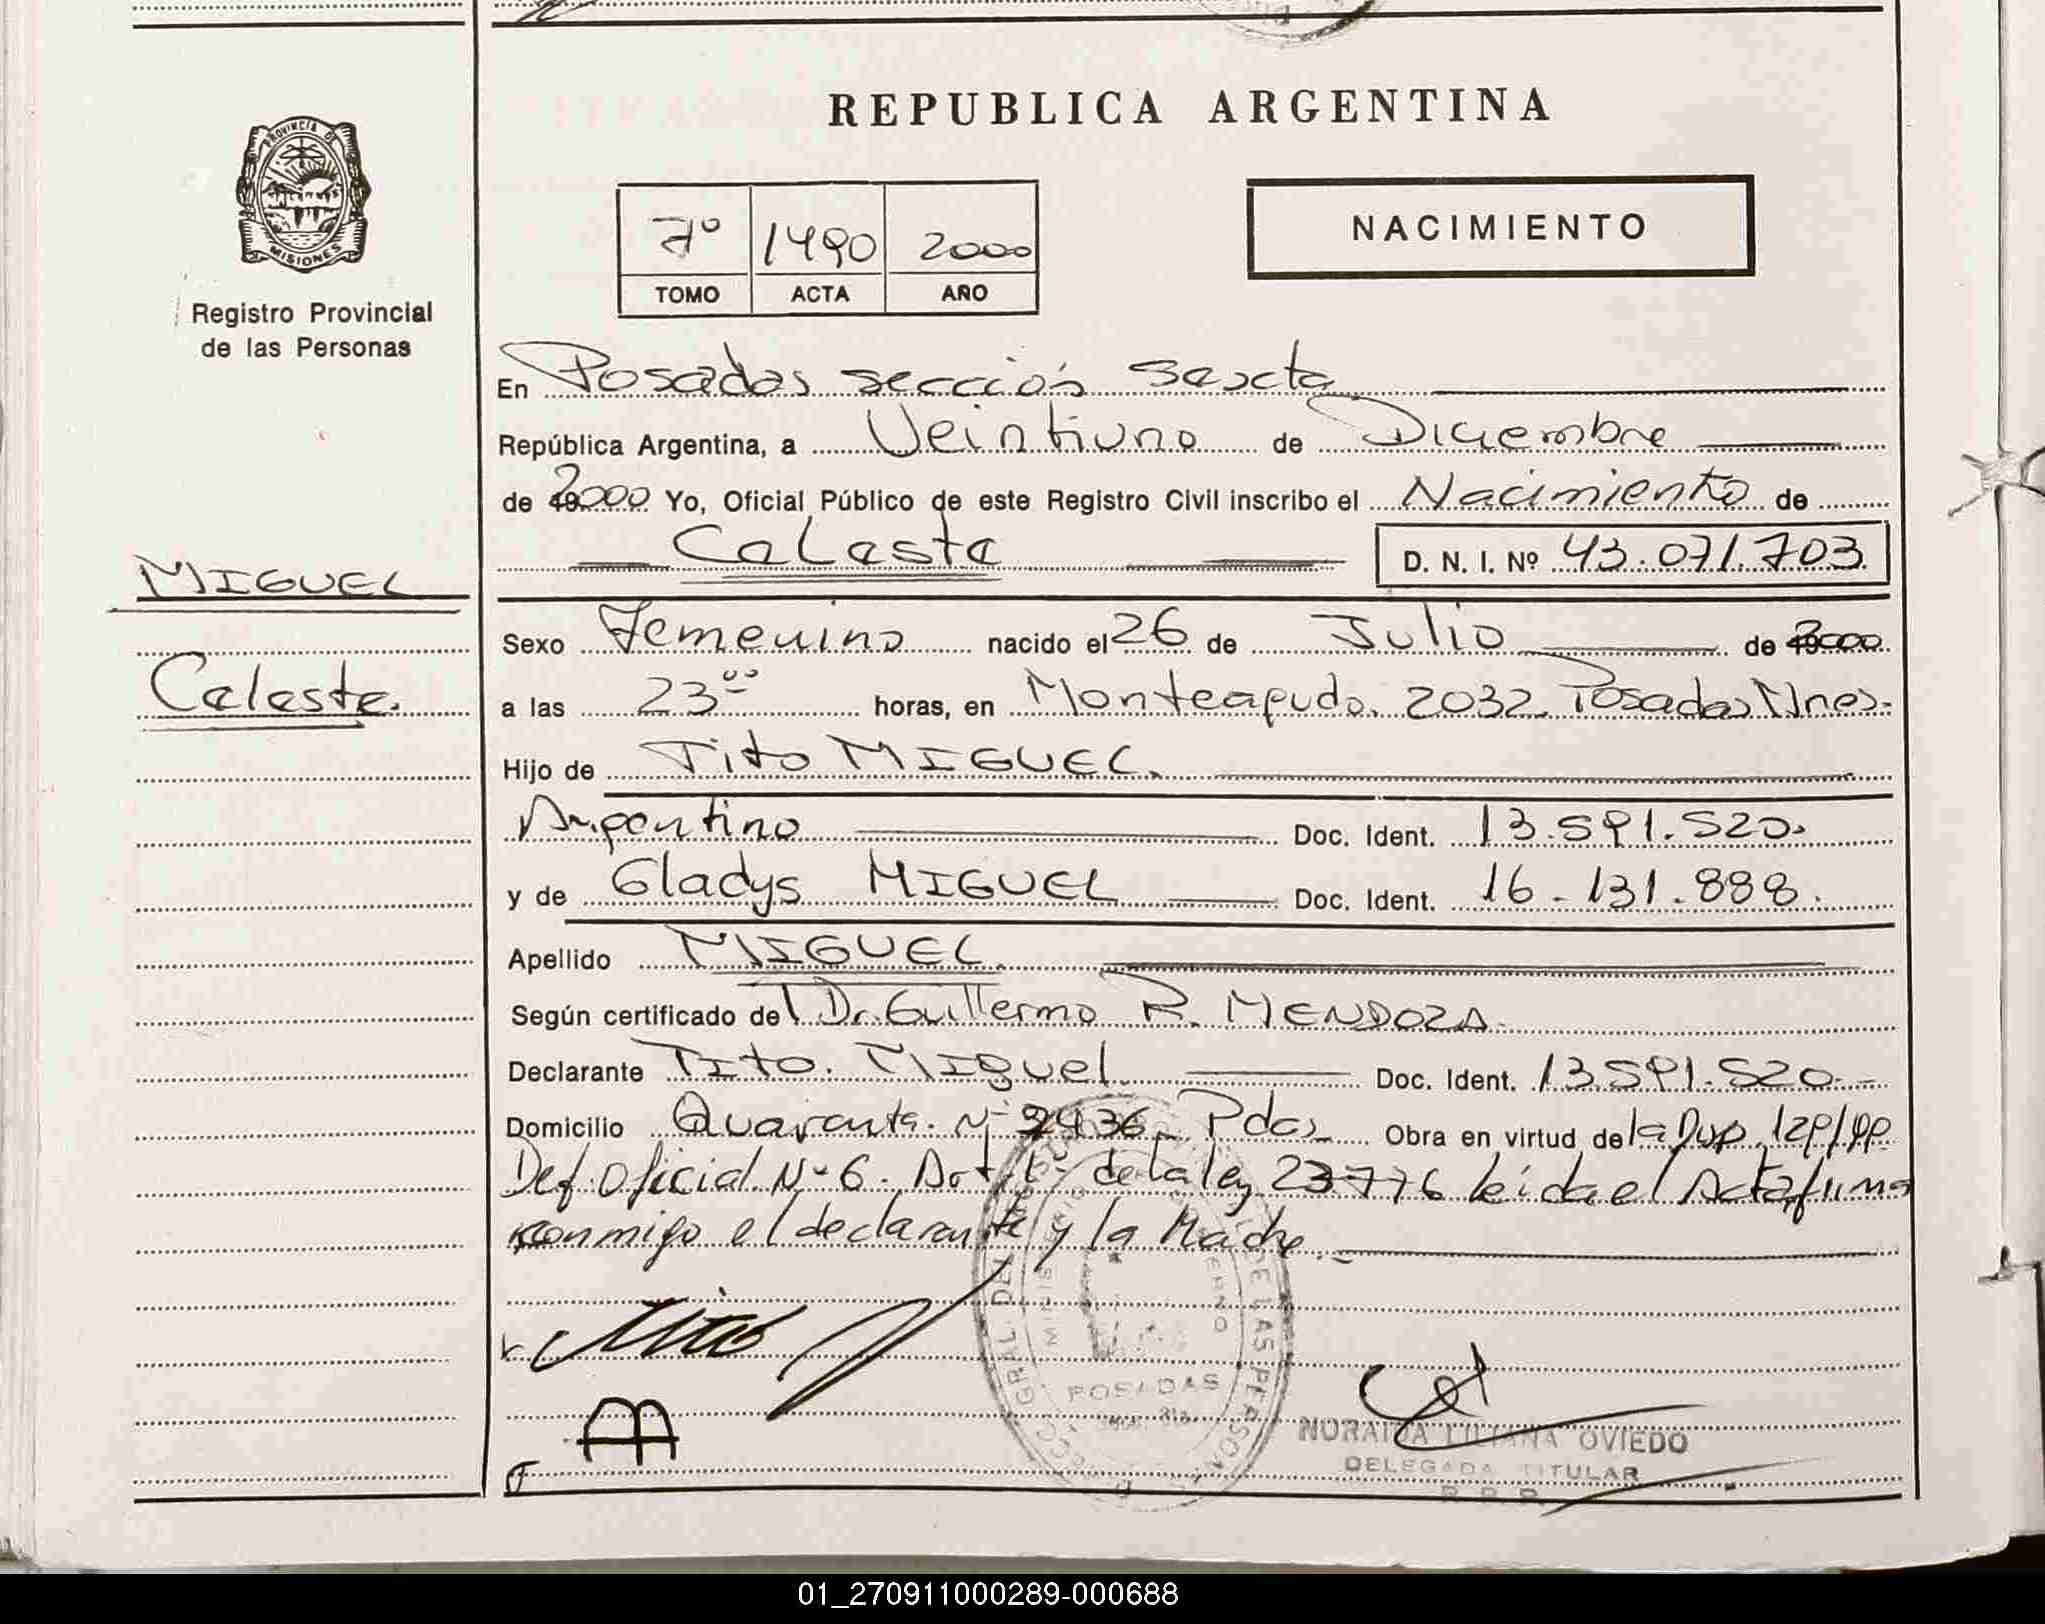 REPUBLICA ARGENTINA
PROVINCIA DE
MISIONES
Registro Provincial
de las Personas
7º 1490 2000
TOMO ACTA AÑO
NACIMIENTO
En Posadas sección Sexta
República Argentina, a Veintiuno de Diciembre
de 2000 Yo, Oficial Público de este Registro Civil inscribo el Nacimiento de
Celeste D. N. I. Nº 43.071.703
MIGUEL
Celeste.
Sexo Femenino nacido el 26 de Julio de 2000
a las 23 00 horas, en Monteagudo. 2032. Posadas Mnes.
Hijo de Tito MIGUEL.
Argentino Doc. Ident. 13.591.520.
y de Gladys MIGUEL Doc. Ident. 16.131.888.
Apellido MIGUEL
Según certificado del Dr. Guillermo R. MENDOZA.
Declarante Tito. Miguel Doc. Ident. 13.591.520.-
Domicilio Quaranta. Nº 2436 Pdas Obra en virtud de la
Def. Oficial Nº 6. Art. de la ley 23776 leída el Acta firma
conmigo el declarante y la Madre.
POSADAS
NORAIDA LILIANA OVIEDO
DELEGADA TITULAR
R. P. P.
01_270911000289-000688